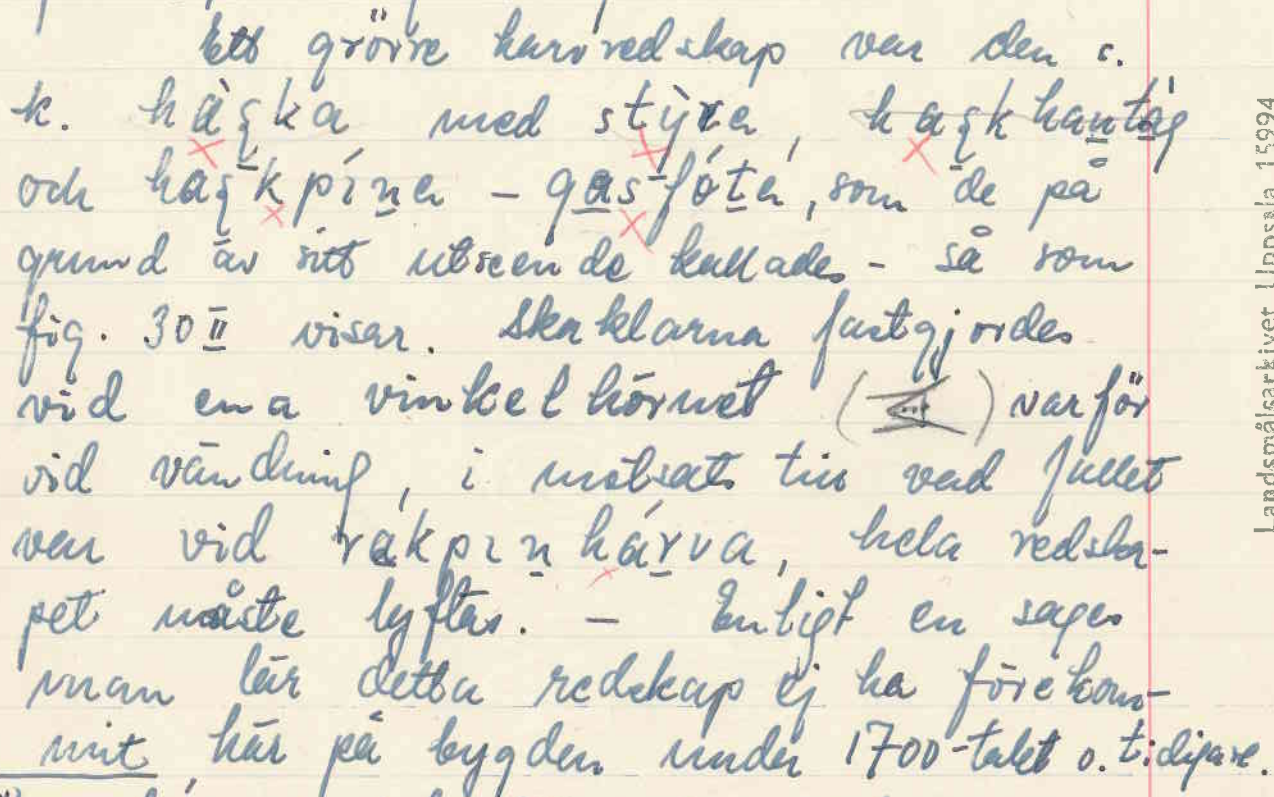 Ett grövre harvredskap var den s.
k. hàşka med stỳra, haşkhantàg
och haşkpíṉa – gas̱fóṯá, som de på
grund av sitt utseende kallades – så som
fig. 30 II visar. Skaklarna fastgjordes
vid ena vinkelhörnet ( ) varför
vid vändning, i motsats till vad fallet
var vid rakpıṉhárva, hela redska-
pet måste lyftas. – Enligt en sages
man lär detta redskap ej ha förekom-
mit här på bygden under 1700-talet o. tidigare.
Landsmålsarkivet Uppsala 15994